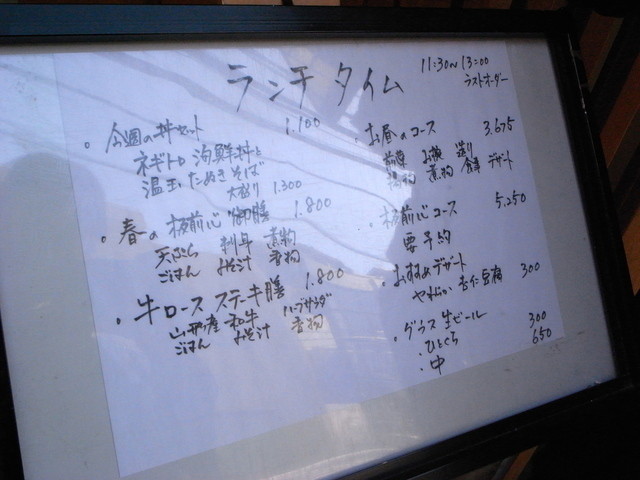 ランチタイム
11:30〜13:00
ラストオーダー
・今週の丼セット 1.100
ネギトロ海鮮丼と
温玉たぬきそば
大盛り 1.300
・春の板前心御膳 1.800
天ぷら 刺身 煮物
ごはん みそ汁 香物
・牛ロースステーキ膳 1.800
山形産 和牛 ハーブサラダ
ごはん みそ汁 香物
・お昼のコース 3.675
前菜 お椀 造り
煮物 食事 デザート
・板前心コース 5.250
要予約
・おすすめデザート
やわらかい杏仁豆腐 300
・グラス生ビール
・ひとくち 300
・中 650